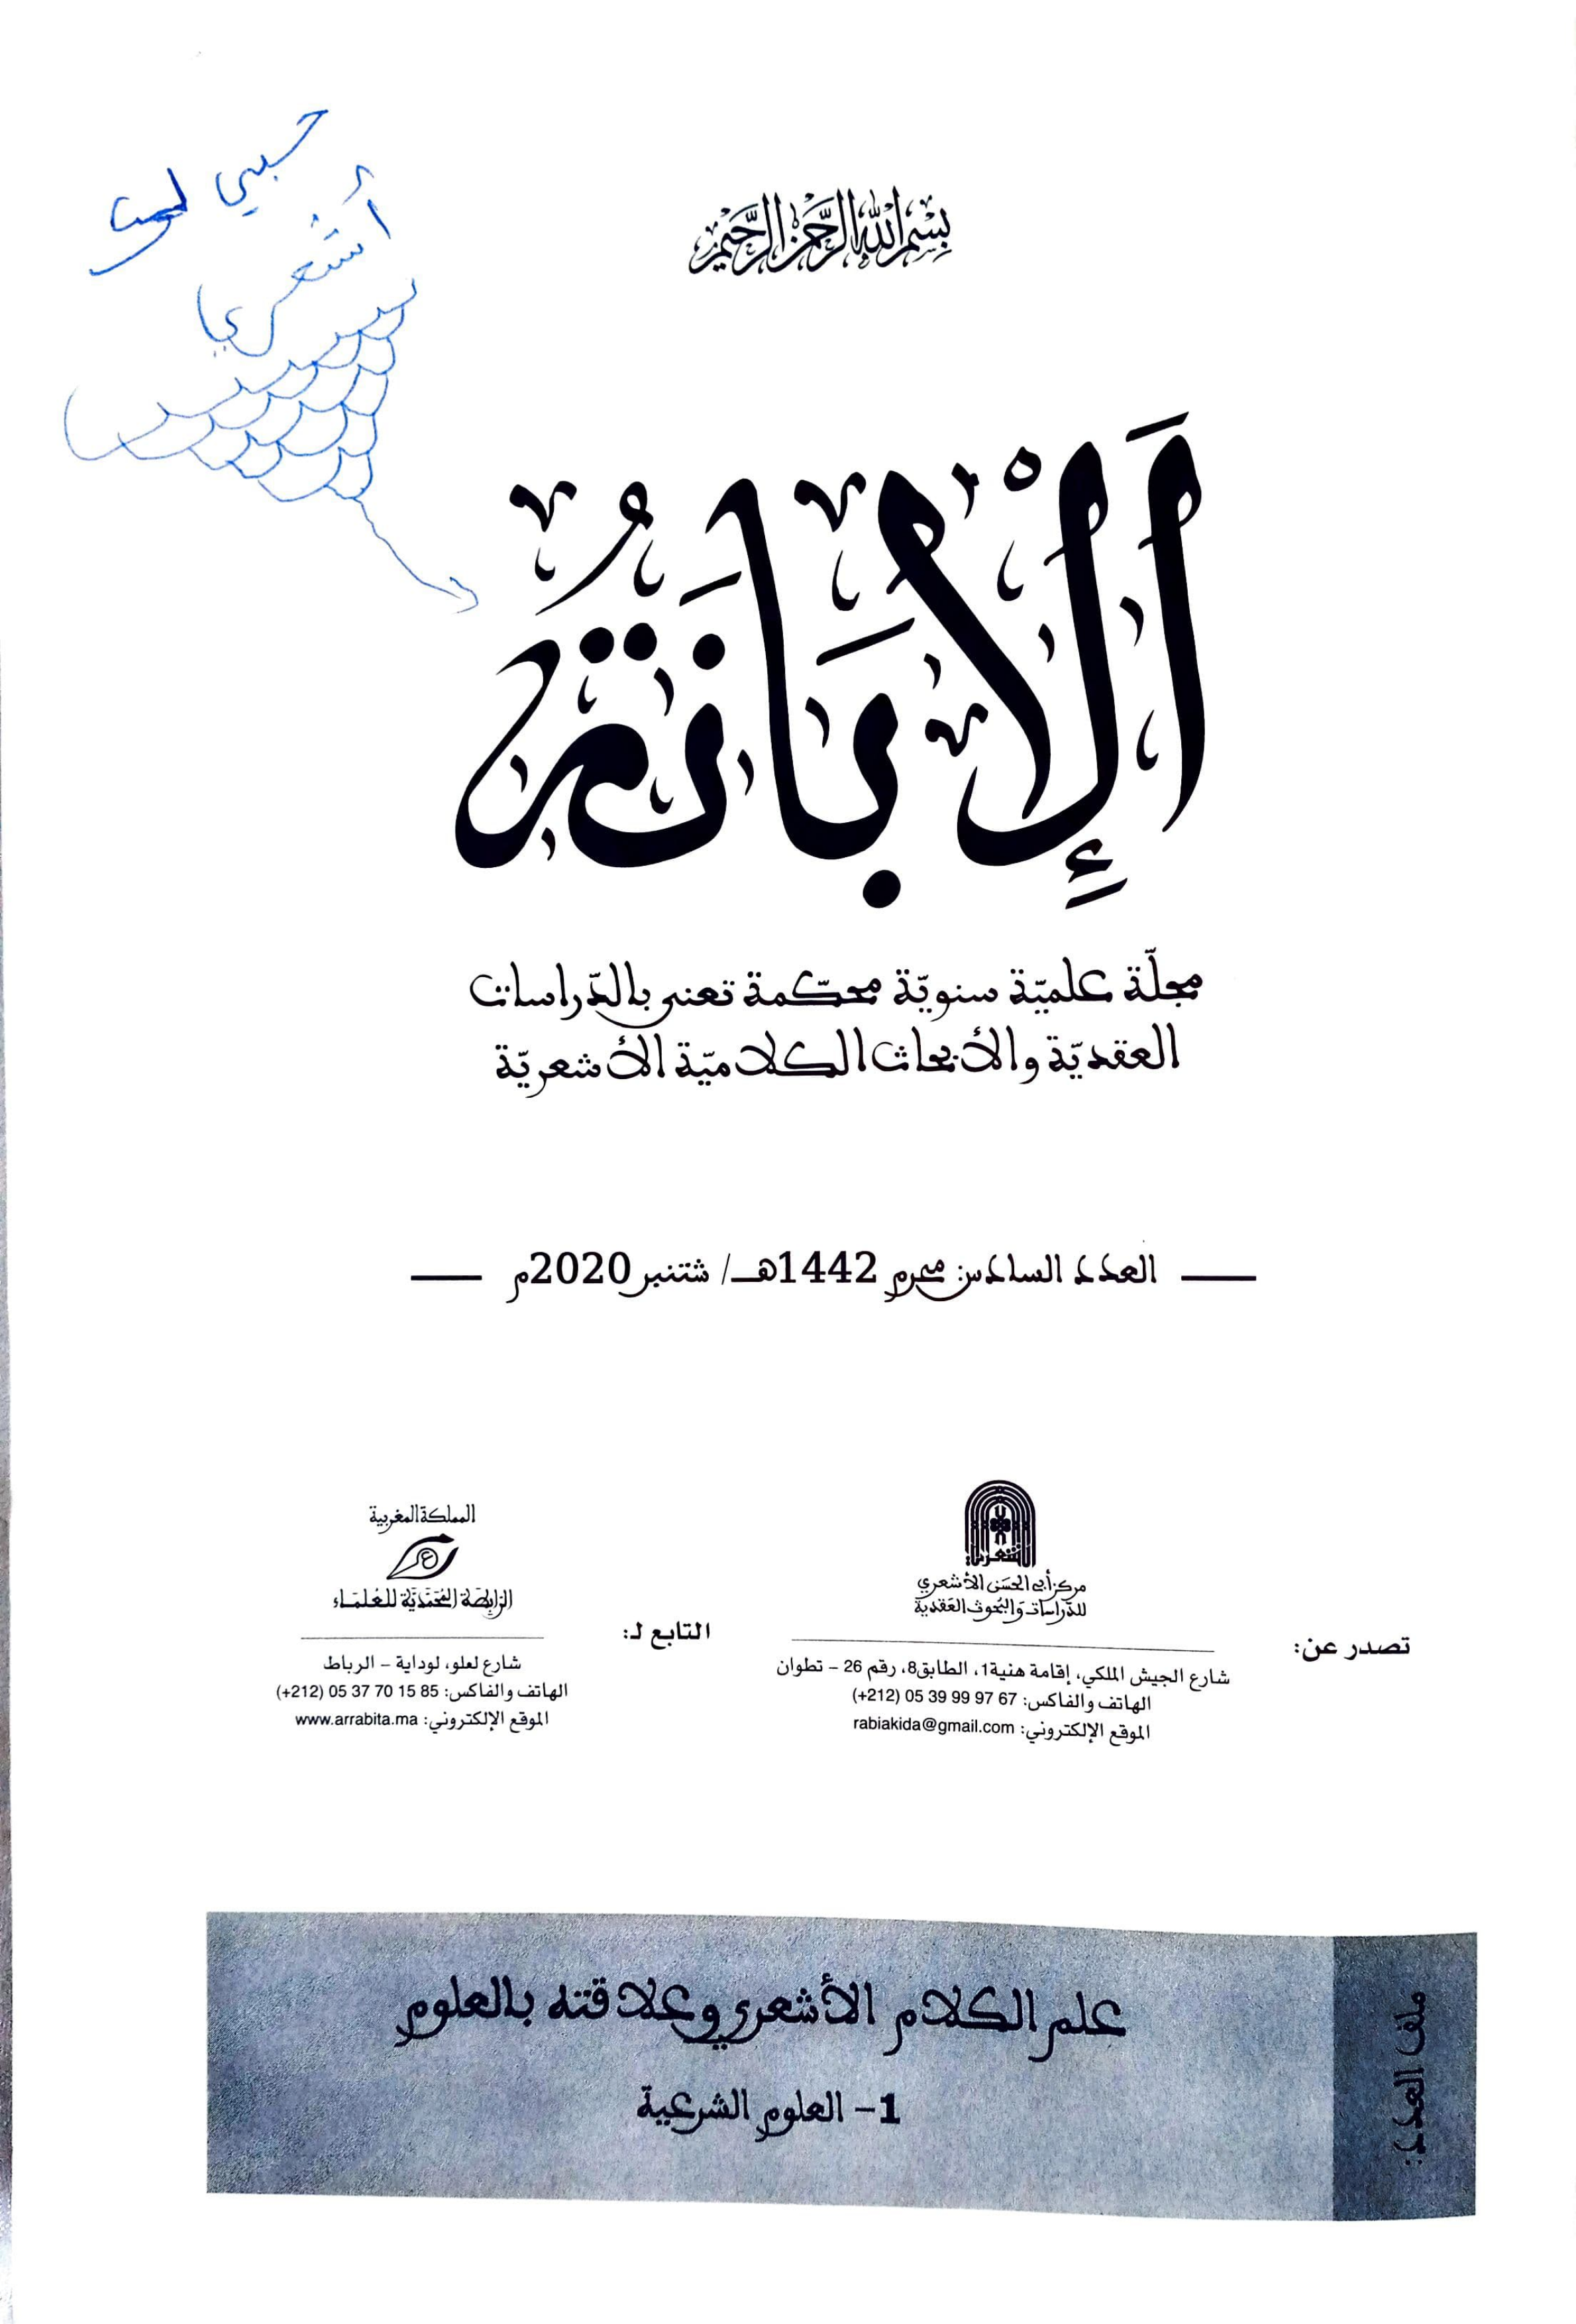 حبيبي لست
أشعريا
بِسْمِ اللَّهِ الرَّحْمَنِ الرَّحِيمِ
اَلْإِبَانَةُ
مجلّة علميّة سنويّة محكّمة تعنى بالدّراسات
العقديّة والأبحاث الكلاميّة الأشعريّة
العدد السادس: محرم 1442هـ/ شتنبر 2020م
تصدر عن:
مركز أبي الحسن الأشعري
للدراسات والبحوث العقدية
شارع الجيش الملكي، إقامة هنية1، الطابق8، رقم 26 – تطوان
الهاتف والفاكس: 67 97 99 39 05 (212+)
الموقع الإلكتروني: rabiakida@gmail.com
التابع لـ:
المملكة المغربية
الرابطة المحمدية للعلماء
شارع لعلو، لوداية – الرباط
الهاتف والفاكس: 85 15 70 37 05 (212+)
الموقع الإلكتروني: www.arrabita.ma
ملف العدد:
علم الكلام الأشعري وعلاقته بالعلوم
1- العلوم الشرعية